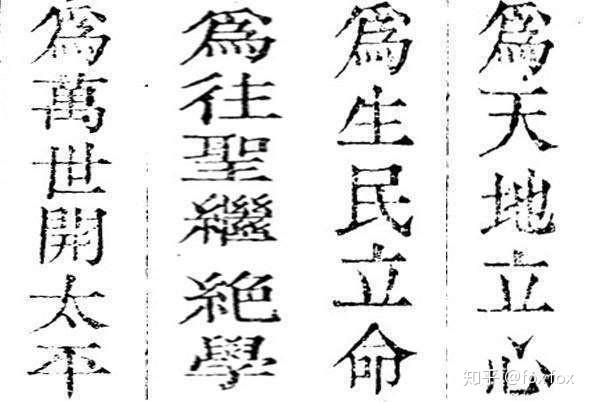 爲天地立心
爲生民立命
爲往聖繼絕學
爲萬世開太平
知乎 @foxfox